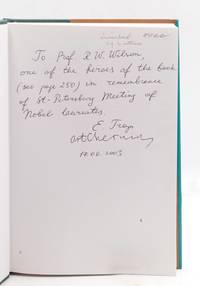 To Prof. R. W. Wilson,
one of the heroes of the book
(see page 250) in remembrance
of St-Petersburg Meeting of
Nobel laureates.
E. Trop
17.06.2003